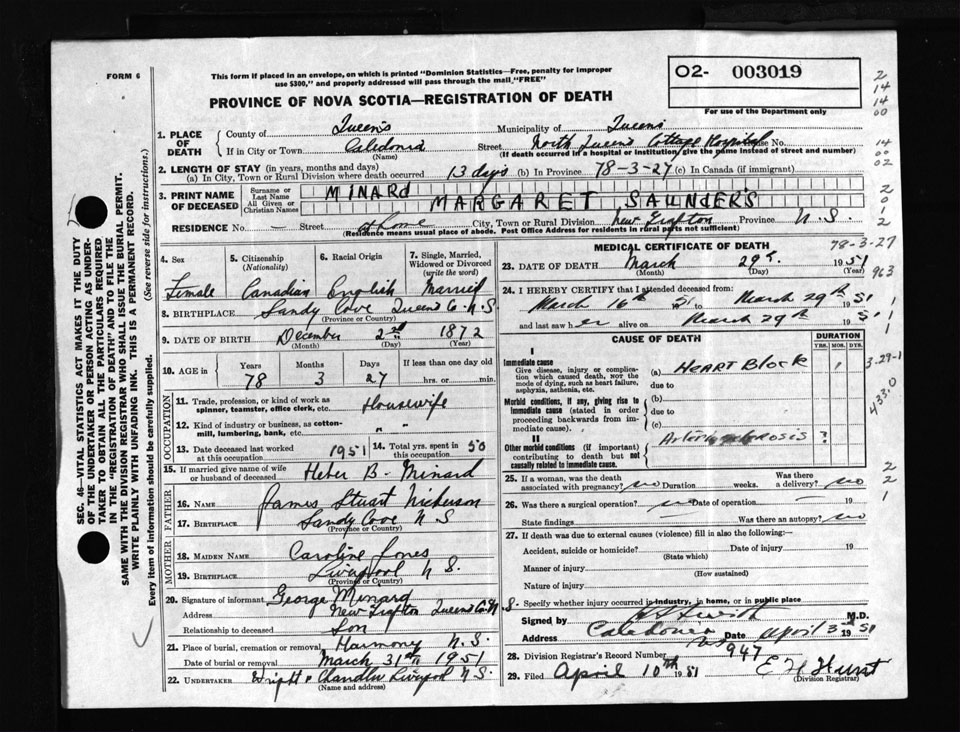 FORM 6
This form if placed in an envelope, on which is printed "Dominion Statistics—Free, penalty for improper
use $300," and properly addressed will pass through the mail, "FREE"
PROVINCE OF NOVA SCOTIA—REGISTRATION OF DEATH
O2- 003019
For use of the Department only
1. PLACE OF DEATH
County of Queen's Municipality of Queens
If in City or Town Caledonia Street North Queens Cottage Hospital House No.
(Name) (If death occurred in a hospital or institution, give the name instead of street and number)
2. LENGTH OF STAY (in years, months and days)
(a) In City, Town or Rural Division where death occurred 13 days (b) In Province 78-3-27 (c) In Canada (if immigrant)
3. PRINT NAME OF DECEASED
Surname or Last Name MINARD
All Given or Christian Names MARGARET SAUNDERS
RESIDENCE No. — Street at home City, Town or Rural Division New Grafton Province N.S.
(Residence means usual place of abode. Post Office Address for residents in rural parts not sufficient)
4. Sex Female
5. Citizenship (Nationality) Canadian
6. Racial Origin English
7. Single, Married, Widowed or Divorced (write the word) Married
8. BIRTHPLACE Sandy Cove Queens Co. N.S.
(Province or Country)
9. DATE OF BIRTH December 2nd 1872
(Month) (Day) (Year)
10. AGE in Years 78 Months 3 Days 27 If less than one day old hrs. or min.
OCCUPATION
11. Trade, profession, or kind of work as spinner, teamster, office clerk, etc. Housewife
12. Kind of industry or business, as cotton-mill, lumbering, bank, etc. " "
13. Date deceased last worked at this occupation 1951
14. Total yrs. spent in this occupation 50
15. If married give name of wife or husband of deceased Heber B. Minard
FATHER
16. NAME James Stuart Nickerson
17. BIRTHPLACE Sandy Cove N S
(Province or Country)
MOTHER
18. MAIDEN NAME Caroline Jones
19. BIRTHPLACE Liverpool N S.
(Province or Country)
20. Signature of informant George Minard
Address New Grafton Queens Co. N S.
Relationship to deceased Son
21. Place of burial, cremation or removal Harmony N.S.
Date of burial or removal March 31st 1951
22. UNDERTAKER Wright & Chandler Liverpool N S.
(Name and address)
MEDICAL CERTIFICATE OF DEATH
78-3-27
23. DATE OF DEATH March 29th. 1951
(Month) (Day) (Year)
963
24. I HEREBY CERTIFY that I attended deceased from:
March 16th 51 to March 29th 1951
and last saw her alive on March 29th 1951
CAUSE OF DEATH
DURATION
YRS. MOS. DYS.
I
Immediate cause
Give disease, injury or complication which caused death, NOT the mode of dying, such as heart failure, asphyxia, asthenia, etc.
(a) HEART BLOCK
due to
Morbid conditions, if any, giving rise to immediate cause (stated in order proceeding backwards from immediate cause)
(b)
due to
(c)
II
Other morbid conditions (if important) contributing to death but not causally related to immediate cause.
Arteriosclerosis ?
433.0
25. If a woman, was the death associated with pregnancy? no Duration weeks. Was there a delivery? no
26. Was there a surgical operation? no Date of operation 19
State findings Was there an autopsy? no
27. If death was due to external causes (violence) fill in also the following:—
Accident, suicide or homicide? Date of injury 19
(State which)
Manner of injury
(How sustained)
Nature of injury
Specify whether injury occurred in industry, in home, or in public place
Signed by M.D.
Address Caledonia Date April 3 1951
28. Division Registrar's Record Number 947
29. Filed April 10th 1951 E H Hunt
(Division Registrar)
SEC. 46—VITAL STATISTICS ACT MAKES IT THE DUTY
OF THE UNDERTAKER OR PERSON ACTING AS UNDER-
TAKER TO OBTAIN ALL THE PARTICULARS REQUIRED
IN THE "REGISTRATION OF DEATH" AND TO FILE THE
SAME WITH THE DIVISION REGISTRAR WHO SHALL ISSUE THE BURIAL PERMIT.
WRITE PLAINLY WITH UNFADING INK. THIS IS A PERMANENT RECORD.
Every item of information should be carefully supplied. (See reverse side for instructions.)
2
14
14
00
14
00
02
2
0
1
2
1
1
1
2
2
1